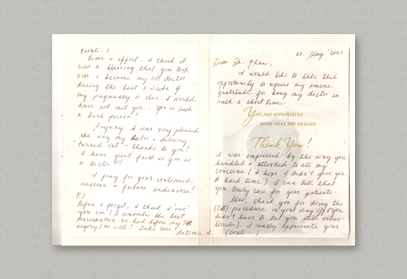 Dear Dr. Phan,
I would like to take this
opportunity to express my sincere
gratitude for being my doctor in
such a short time.
You are appreciated
more than you realize.
Thank You!
I was impressed by the way you
handled & attended to all my
concerns (I hope I didn't give you
a hard time). I can tell that
you truly care for your patients.
Also, thank you for doing the
procedure on your day off (you
didn't have to, but you still
). I really appreciate your
(cont.)
(cont.)
time & effort. I think it
was a blessing that you took
over & became my OB doctor
during the last 3 weeks of
my pregnancy or else I would
have not met you. You're such
a kind person!
Anyway, I was very pleased
the way my doctor's delivery
turned out - thanks to you,
I have great faith in you as
a doctor!!!
I pray for your continued
success & future endeavors!
P.S.
Before I forget, I think I owe
you one! (I remember the last
conversation we had before my
surgery) so with! Take care